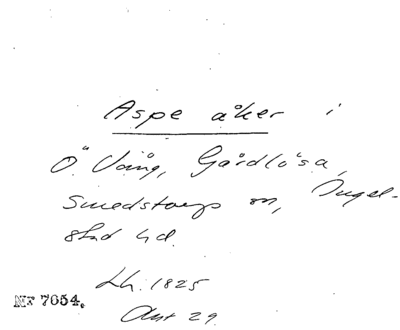 Aspe åker i
Ö. Vång, Gårdlösa,
Smedstorps sn, Ingel-
stad hd.
Lh. 1825
Akt 29.
Nr 7054.